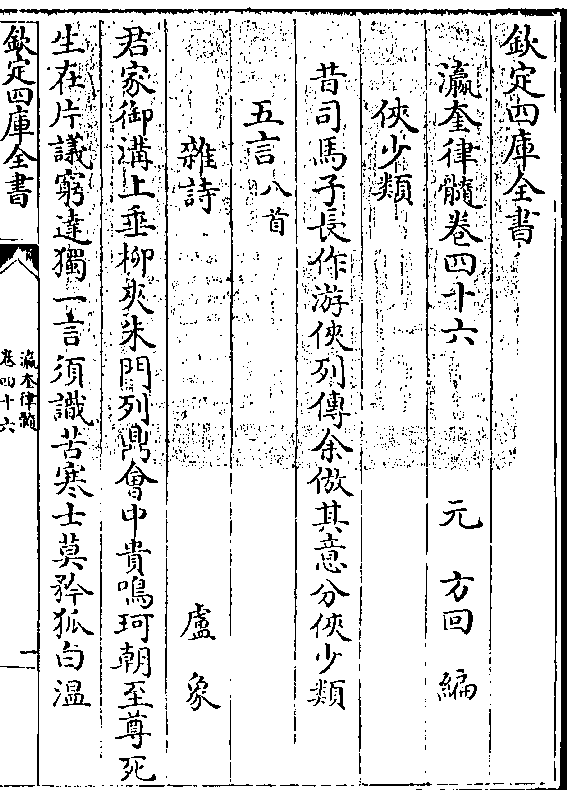 欽定四庫全書
瀛奎律髓卷四十六　元　方回　編
俠少類
昔司馬子長作游俠列傳余倣其意分俠少類
五言八首
雜詩　盧象
君家御溝上垂柳夾朱門列鼎會中貴鳴珂朝至尊死
生在片議窮達獨一言須識苦寒士莫矜狐白温
欽定四庫全書
瀛奎律髓
卷四十六
一